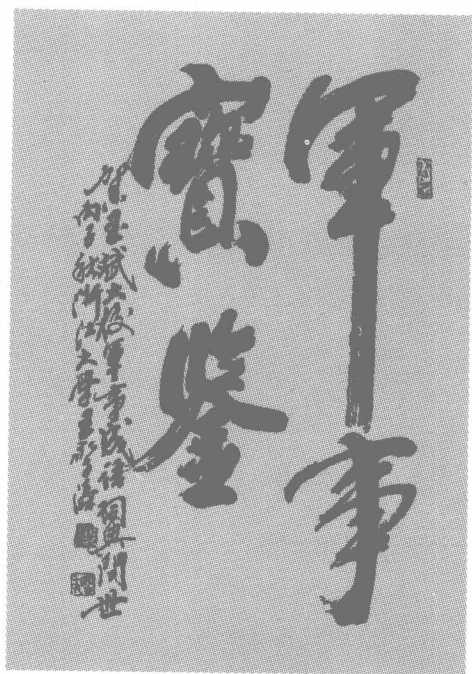 軍事
寶鑒
賀玉斌大校軍事成語詞典問世
丙子秋浙江大學